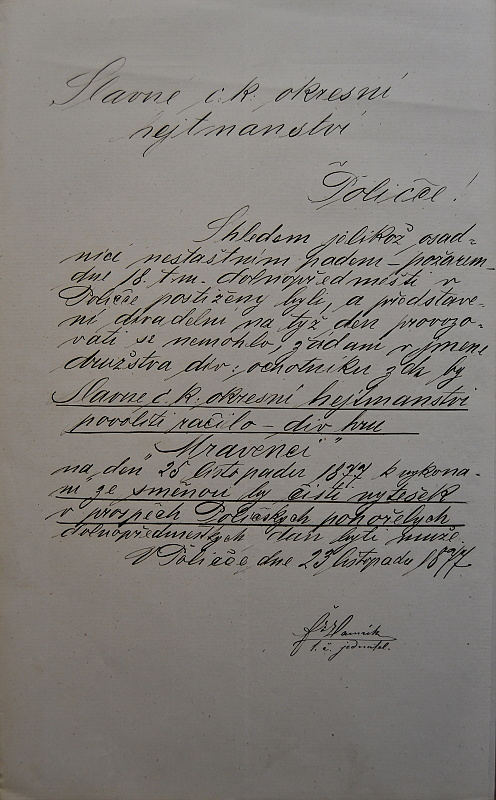 Slavné c. k. okresní
hejtmanství
v Poličce!
Shledem jelikož osad-
níci nešťastním padem – požárem –
dne 18. t. m. dolnopředměstí v
Poličce postiženy byly, a představe-
ní divadelní na týž den provozo-
váti se nemohlo, žádám v jmene
družstva div: ochotníku zda by
Slavné c. k. okresní hejtmanství
povóliti ráčilo – div hru
"Mravenci"
na den 25 listopadu 1877 k vykona-
ní že směnou by čistí vytěžek
v prospěch Poličských pohořelých
dolnopředměstských dán býti může.
V Poličce dne 23 listopadu 1877
t. č. jednatel.